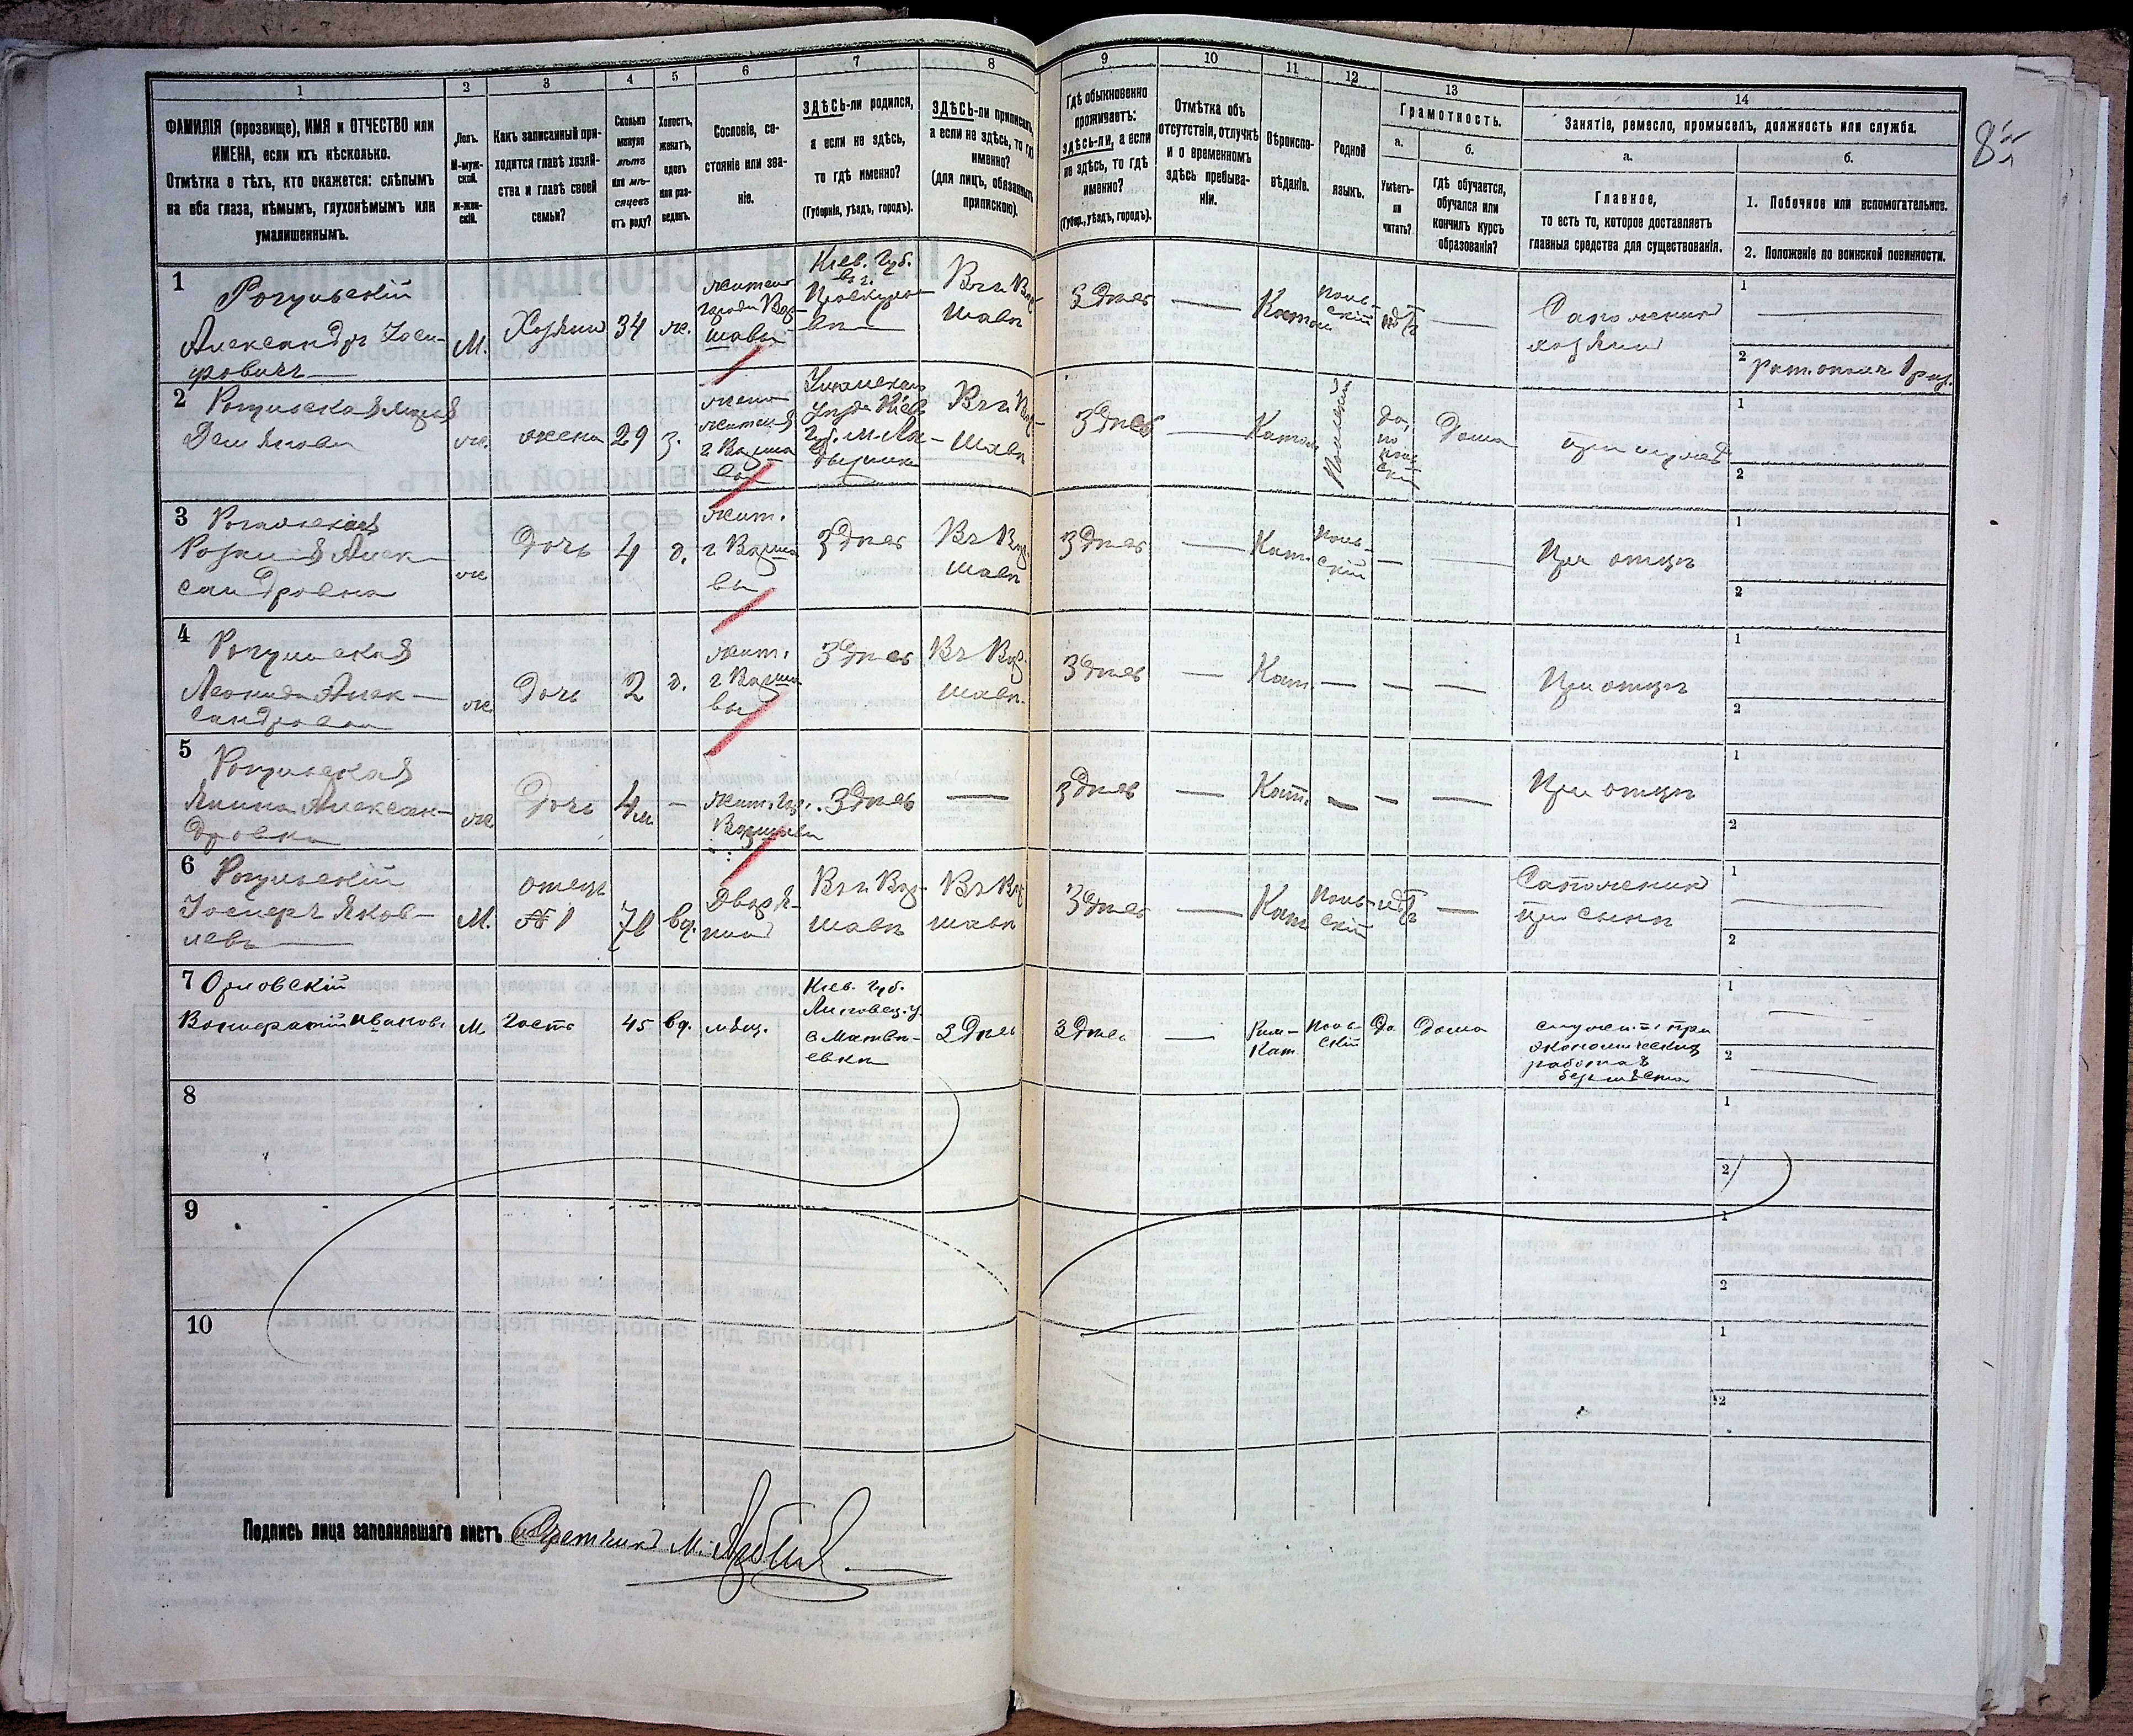 1
2
3
4
5
6
7
8
9
10
11
12
13
14
ФАМИЛІЯ (прозвище), ИМЯ и ОТЧЕСТВО или
ИМЕНА, если ихъ нѣсколько.
Отмѣтка о тѣхъ, кто окажется: слѣпымъ
на оба глаза, нѣмымъ, глухонѣмымъ или
умалишеннымъ.
Полъ.
М-муж-
ской.
ж-жен-
скій.
Какъ записанный при-
ходится главѣ хозяй-
ства и главѣ своей
семьи?
Сколько
минуло
лѣтъ
или мѣ-
сяцевъ
отъ роду?
Холостъ,
женатъ,
вдовъ
или раз-
веденъ.
Сословіе, со-
стояніе или зва-
ніе.
ЗДѢСЬ-ли родился,
а если не здѣсь,
то гдѣ именно?
(Губернія, уѣздъ, городъ).
ЗДѢСЬ-ли приписанъ,
а если не здѣсь, то гдѣ
именно?
(для лицъ, обязанныхъ
припискою).
Гдѣ обыкновенно
проживаетъ:
здѣсь-ли, а если
не здѣсь, то гдѣ
именно?
(Губер., уѣздъ, городъ).
Отмѣтка объ
отсутствіи, отлучкѣ
и о временномъ
здѣсь пребыва-
ніи.
Вѣроиспо-
вѣданіе.
Родной
языкъ.
Грамотность.
а.
Умѣетъ-
ли
читать?
б.
гдѣ обучается,
обучался или
кончилъ курсъ
образованія?
Занятіе, ремесло, промыселъ, должность или служба.
а.
Главное,
то есть то, которое доставляетъ
главныя средства для существованія.
б.
1. Побочное или вспомогательное.
2. Положеніе по воинской повинности.
1 Рогульскій
Александръ Іоси-
фовичъ
М.
Хозяинъ
34
ж.
жители
города Вар-
шавы
Кіев. Губ.
Въ г. Вар-
шавѣ
Здѣсь
Катол
поль-
скій
нѣтъ
Сапожникъ
хозяинъ
1
2
2 Рогульская
ж.
жена
29
з.
жена
г Варша
вы
Въ г Вар-
шавѣ
Здѣсь
Катол
Польскій
да,
по
поль
ски
Дома
при мужѣ
1
2
3 Рогульская
Алек-
сандровна
ж
Дочь
4
д.
жит.
г Варша
вы
Здѣсь
Въ Вар-
шавѣ
Здѣсь
Кат.
поль-
скій
При отцѣ
1
2
4 Рогульская
Леонида Алек-
сандровна
ж
Дочь
2
д.
жит.
г Варша
вы
Здѣсь
Въ Вар-
шавѣ.
Здѣсь
Кат.
При отцѣ
1
2
5 Рогульская
Янина Алексан-
дровна
ж
Дочь
4 м.
жит. гор.
Варшавы
Здѣсь
Здѣсь
Кат.
При отцѣ
1
2
6 Рогульскій
Іосифъ Яков-
левъ
М.
отецъ
№ 1
70
вд.
Дворя-
нинъ
Въ г Вар-
шавѣ
Въ Вар
шавѣ
Здѣсь
Кат.
поль-
скій
нѣтъ
Сапожникъ
при сынѣ
1
2
7 Орловскій
Иванов.
М
Гость
45
вд.
мѣщ.
Кіев. Губ.
Липовец. у.
с Матвѣ-
евкѣ
Здѣсь
Здѣсь
Рим-
Кат.
поль-
скій
Да
Дома
1
2
8
1
2
9
1
2
10
1
2
Подпись лица заполнявшаго листъ Счетчикъ М.